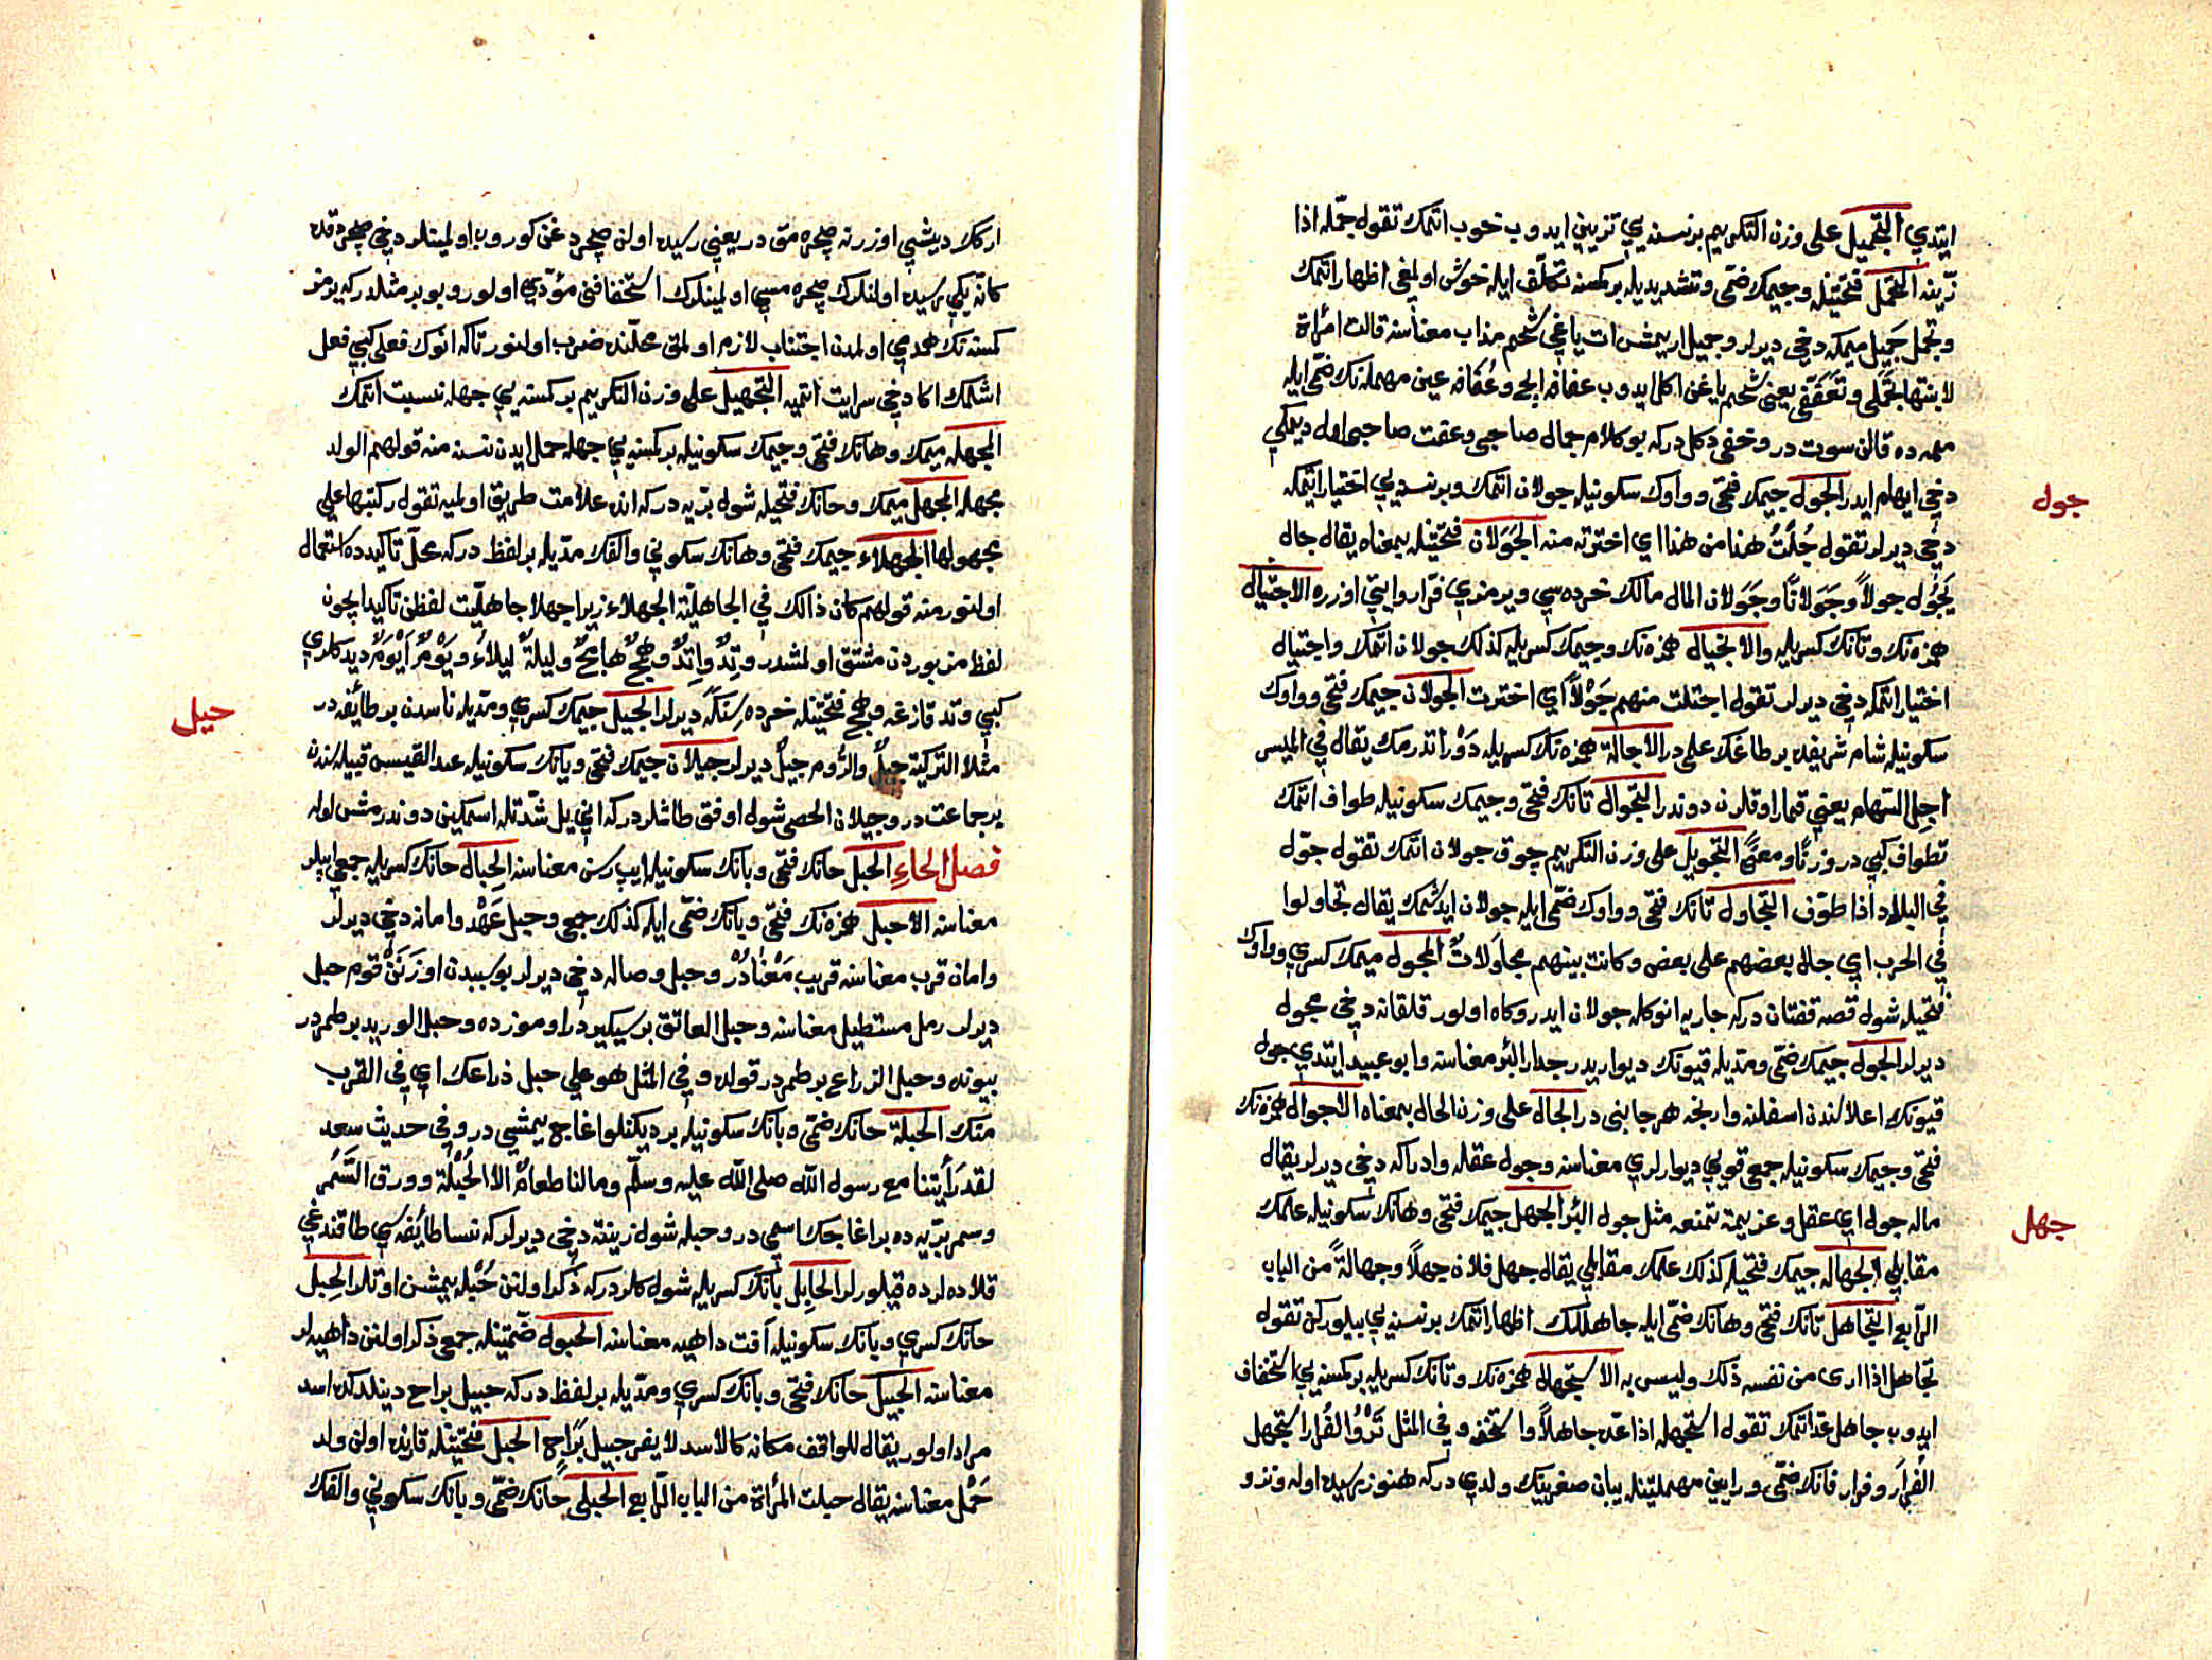 ايتدي التجميل على وزن التكريم برنسنه يي تزيين ايدوب خوب اتمك تقول جمّله اذا
زيّنه التجمّل فتحتينله وجيمك ضمّى وتشديديله بركمسنه تكلّف ايله خوش اولمغى اظهار اتمك
وتجمل جَميل يمكه دخي ديرلر وجميل اريمشن ات ياغي شحم مذاب معناسنه قالت امرأة
لابنتها تجمّلى وتعفّفى يعنى شحم ياغن اكل ايدوب عفافه ايچ وعُفافه عين مهملنك ضمّى ايله
ممه ده قالن سوت در وخفى دكلدركه بوكلام جمال صاحبى وعفت صاحبى اول ديمكي
دخي ايهام ايدر الجول جيمك فتحى وواوك سكونيله جولان اتمك وبرنسنه يي اختيار اتمكه
جول
دخي ديرلر تقول جُلْتُ هذا من هذا اي اخترته منه الجَوَلان فتحتينله بمعناه يقال جال
يَجُول جولاً وجَوَلاناً وجَوَلان المال مالك خرده سي ويرمزي فرّار وايتي اوزره الاجتيال
همزه نك وتانك كسريله والانجيال همزه نك وجيمك كسريله كذلك جولان اتمك واجتيال
اختيار اتمكه دخي ديرلر تقول اجتلت منهم جَوْلاً اي اخترت الجولان جيمك فتحى وواوك
سكونيله شام شريفده بر طاغك علمى در الاجالة همزه نك كسريله دَوْر اتدرمك يقال في الميس
اجِل السهام يعني قمار اوقلرن دوندر التجوال تانك فتحى وجيمك سكونيله طواف اتمك
تطواف كبي در وزنًا ومعنًى التجويل على وزن التكريم چوق جولان اتمك تقول جوّل
في البلاد اذا طوّف التجاول تانك فتحى وواوك ضمّى ايله جولان ايدشمك يقال تجاولوا
في الحرب اي جال بعضهم على بعض وكانت بينهم مجاوَلاتٌ المجول ميمك كسري وواوك
فتحيله شول قصه قفتان دركه جاريه انوكله جولان ايدر وكاه اولور قلقانه دخي مجول
ديرلر الجول جيمك ضمّى ومدّيله قيونك ديواريدر جدار البئر معناسنه وابو عبيد ايتدي جول
قيونك اعلاسندن اسفلنه وارنجه هر جانبى در الجال على وزن الحال بمعناه الاجوال همزه نك
فتحى وجيمك سكونيله جمعى قوي ديوارلري معناسنه وجول عقله وادراكه دخي ديرلر يقال
ماله جول اي عقل وعزيمة تمنعه مثل جول البئر الجهل جيمك فتحى وهانك سكونيله علمك
جهل
مقابلي الجهاله جيمك فتحيله كذلك علمك مقابلي يقال جهل فلان جهلاً وجهالةً من الباب
الرابع التجاهل تانك فتحى وهانك ضمّى ايله جاهللك اظهار اتمك برنسنه يي بيلوركن تقول
تجاهل اذا ارى من نفسه ذلك وليس به الاستجهال همزه نك وتانك كسريله بركمسنه يي استخفاف
ايدوب جاهل عدّ اتمك تقول استجهله اذا عدّه جاهلاً واستخفه وفي المثل نَزْوُ الفُرار استجهل
الفُرارَ وفرار فانك ضمّى ورايين مهملتينله يبان صغرينك ولدي دركه هنوز رسيده اوله ونزو
اركك ديشي اوزرنه صچره مق دريعني رسيده اولن صچردغن كوروب اولمينلر دخي صچردقده
كانه يكي رسيده اولنلرك صچره مسي اولمينلرك استخفافنى مؤدّي اولور وبو بر مثلدركه يرمز
كمسنه نك همدمي اولمدن اجتناب لازم اولمق محلّنده ضرب اولنور تاكه انوك فعلى كبي فعل
اشلمك اكا دخي سرايت اتميه التجهيل على وزن التكريم بركمسنه يي جهله نسبت اتمك
المجهله ميمك وهانك فتحى وجيمك سكونيله بركمسنه يي جهله حمل ايدن نسنه منه قولهم الولد
مجهله المجهل ميمك وحانك فتحيله شول بريه دركه انده علامت طريق اولميه تقول ركبتها على
مجهولها الجهلاء جيمك فتحى وهانك سكوني والفك مدّيله بر لفظدركه محلّ تاكيدده استعمال
اولنور منه قولهم كان ذالك في الجاهليّة الجهلاء زيرا جهلا جاهليّت لفظن تاكيد ايچون
لفظ مزبوردن مشتق اولمشدر وتِدٌ واتِدٌ وهَمَجٌ هامجٌ وليلةٌ ليلاءُ ويَوْمٌ اَيْوَمُ ديدكلري
كبي وتد قازغه وهمج فتحتينله خرده سِنَكه ديرلر الجيل جيمك كسري ومدّيله ناسدن بر طائفه در
جيل
مثلا التركية جيلٌ والرّوم جيلٌ ديرلر جيلان جيمك فتحى ويانك سكونيله عبد القيس قبيله سندن
برجماعت در وجيلان الحصى شول اوفق طاشلردركه انى يل شدّتله اسمكين دوندرمش اوله
فصل الحاءِ الحبل حانك فتحى وبانك سكونيله ايپ رسن معناسنه الحِبال حانك كسريله جمعى ايپلر
معناسنه الاحبل همزه نك فتحى وبانك ضمّى ايله كذلك جمعى وحبل عَهْد وامانه دخي ديرلر
وامان قرب معناسنه قريب مَعْنادُر وحبل وصاله دخي ديرلر بوسببدن اوزَنْمَنْ قوم حبل
ديرلر رمل مستطيل معناسنه وحبل العاتق برسيكيردر اوموزده وحبل الوريد بر طمردر
بيونده وحبل الذراع بر طمردر قولده وفي المثل هو على حبل ذراعك اي في القرب
منك الحبلة حانك ضمّى وبانك سكونيله برديكنلو اغاجى يمشي در وفي حديث سعد
لقد رأيتنا مع رسول الله صلى الله عليه وسلّم ومالنا طعامٌ الا الحُبْلَة وورق السَّمُر
وسمر بريّه ده بر اغاجك اسمى در وحبله شول زينته دخي ديرلركه نسا طائفه سي طاقندغي
قلاده لرده قيلورلر الحابِل بانك كسريله شول كلردركه ذكر اولنن حُبْله يمشن اوتلر الحِبل
حانك كسري وبانك سكونيله آفت داهيه معناسنه الحبول ضمّتينله جمعى ذكر اولنن داهيه لر
معناسنه الحَبيل حانك فتحى وبانك كسري ومدّيله بر لفظدركه حبيل براح دينلدكده اسد
مراد اولور يقال للواقف مكانه كالاسد لا يفر حبيل بَراح الحبل فتحتينله قارنده اولن ولد
حَمْل معناسنه يقال حبلت المرأة من الباب الرّابع الحبلى حانك ضمّى وبانك سكوني والفك